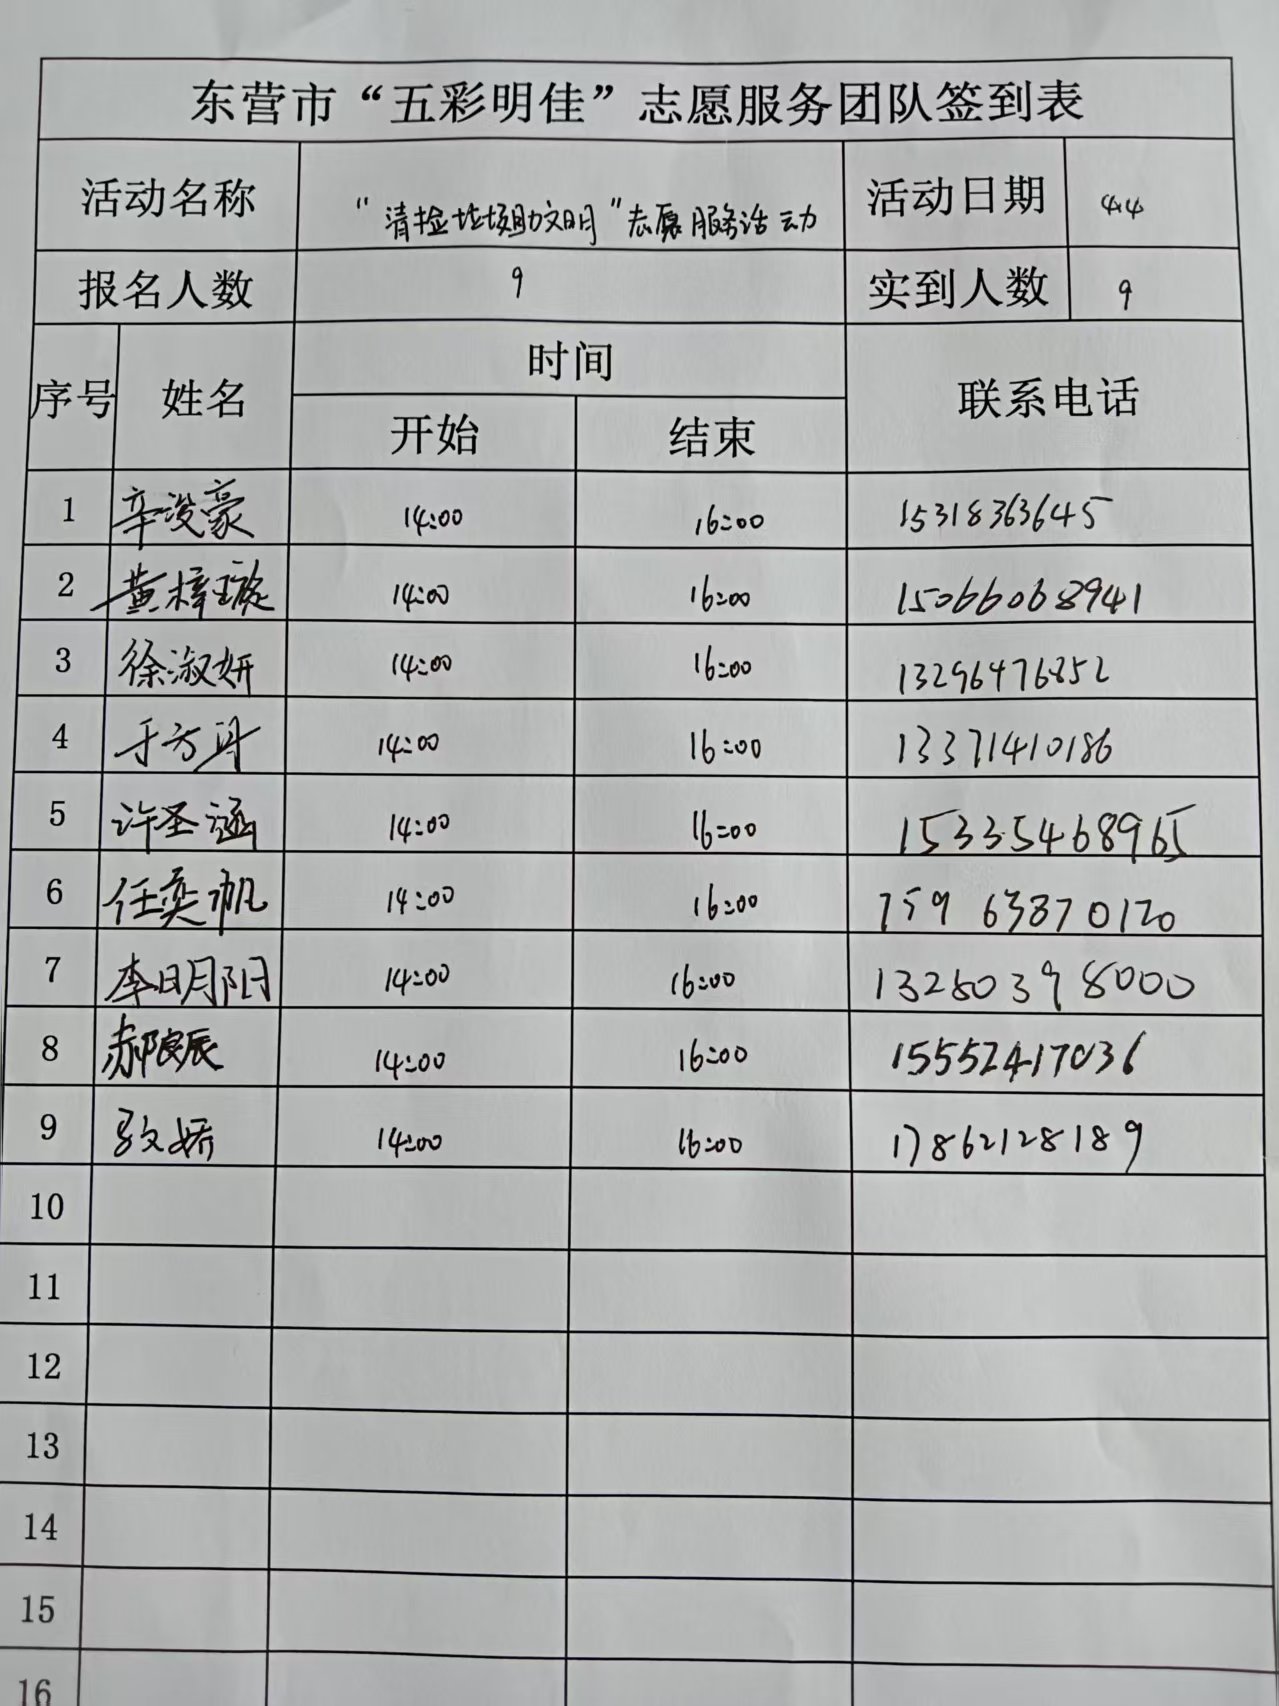 东营市“五彩明佳”志愿服务团队签到表
活动名称 “清捡垃圾助文明”志愿服务活动 活动日期 4.4
报名人数 9 实到人数 9
序号 姓名 时间 联系电话
开始 结束
1 辛浚豪 14:00 16:00 15318363645
2 黄梓璇 14:00 16:00 15066068941
3 徐淑妍 14:00 16:00 13296476252
4 于方舟 14:00 16:00 13371410186
5 许圣涵 14:00 16:00 15335468965
6 任奕帆 14:00 16:00 159 63870120
7 李明阳 14:00 16:00 13280398000
8 郝良辰 14:00 16:00 15552417036
9 14:00 16:00 17862128189
10
11
12
13
14
15
16